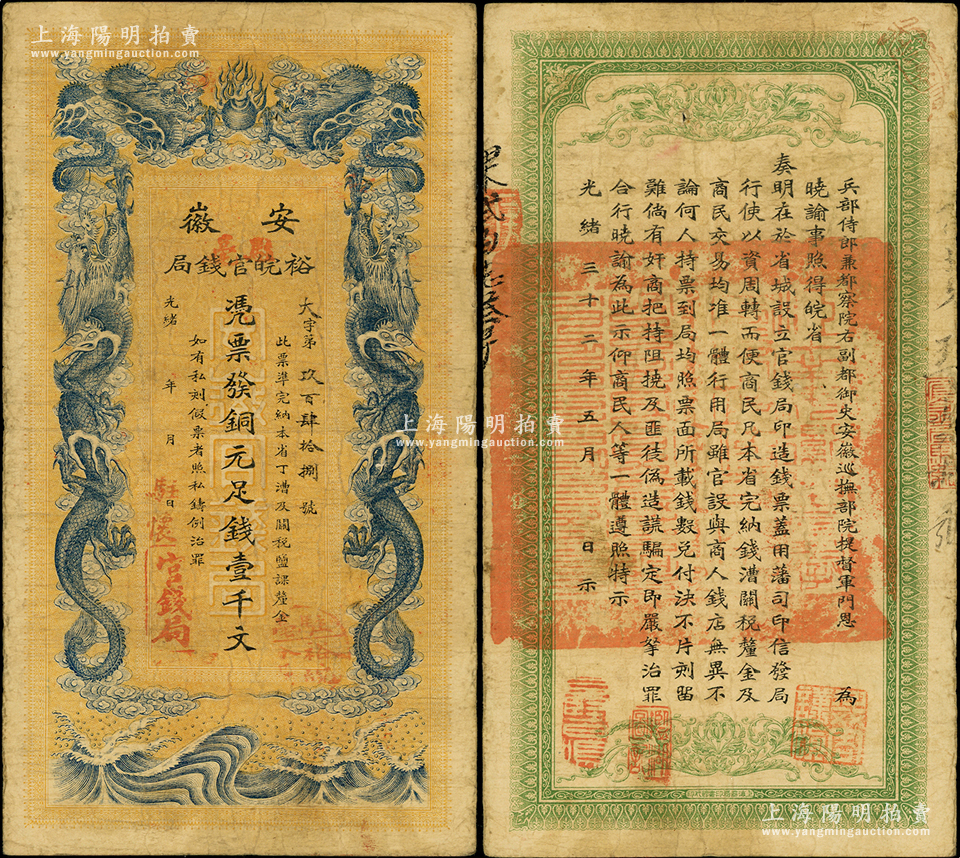 上海陽明拍賣
www.yangmingauction.com
安徽
裕皖官錢局
大字第玖百肆拾捌號
此票準完納本省丁漕及關稅鹽課釐金
憑票發銅元足錢壹千文
如有私刻假票者照私鑄例治罪
光緒 年 月 日
駐
懷
官錢局
上海陽明拍賣
www.yangmingauction.com
兵部侍郎兼都察院右副都御史安徽巡撫部院提督軍門恩 為
曉諭事照得皖省
奏明在於省城設立官錢局印造錢票蓋用藩司印信發局
行使以資周轉而便商民凡本省完納錢漕關稅釐金及
商民交易均准一體行用局雖官設與商人錢店無異不
論何人持票到局均照票面所載錢數兌付決不片刻留
難倘有奸商把持阻撓及匪徒偽造謊騙定即嚴拏治罪
合行曉諭為此示仰商民人等一體遵照特示
光緒三十二年五月 日示
上海陽明拍賣
www.yangmingauction.com
上海陽明拍賣
www.yangmingauction.com